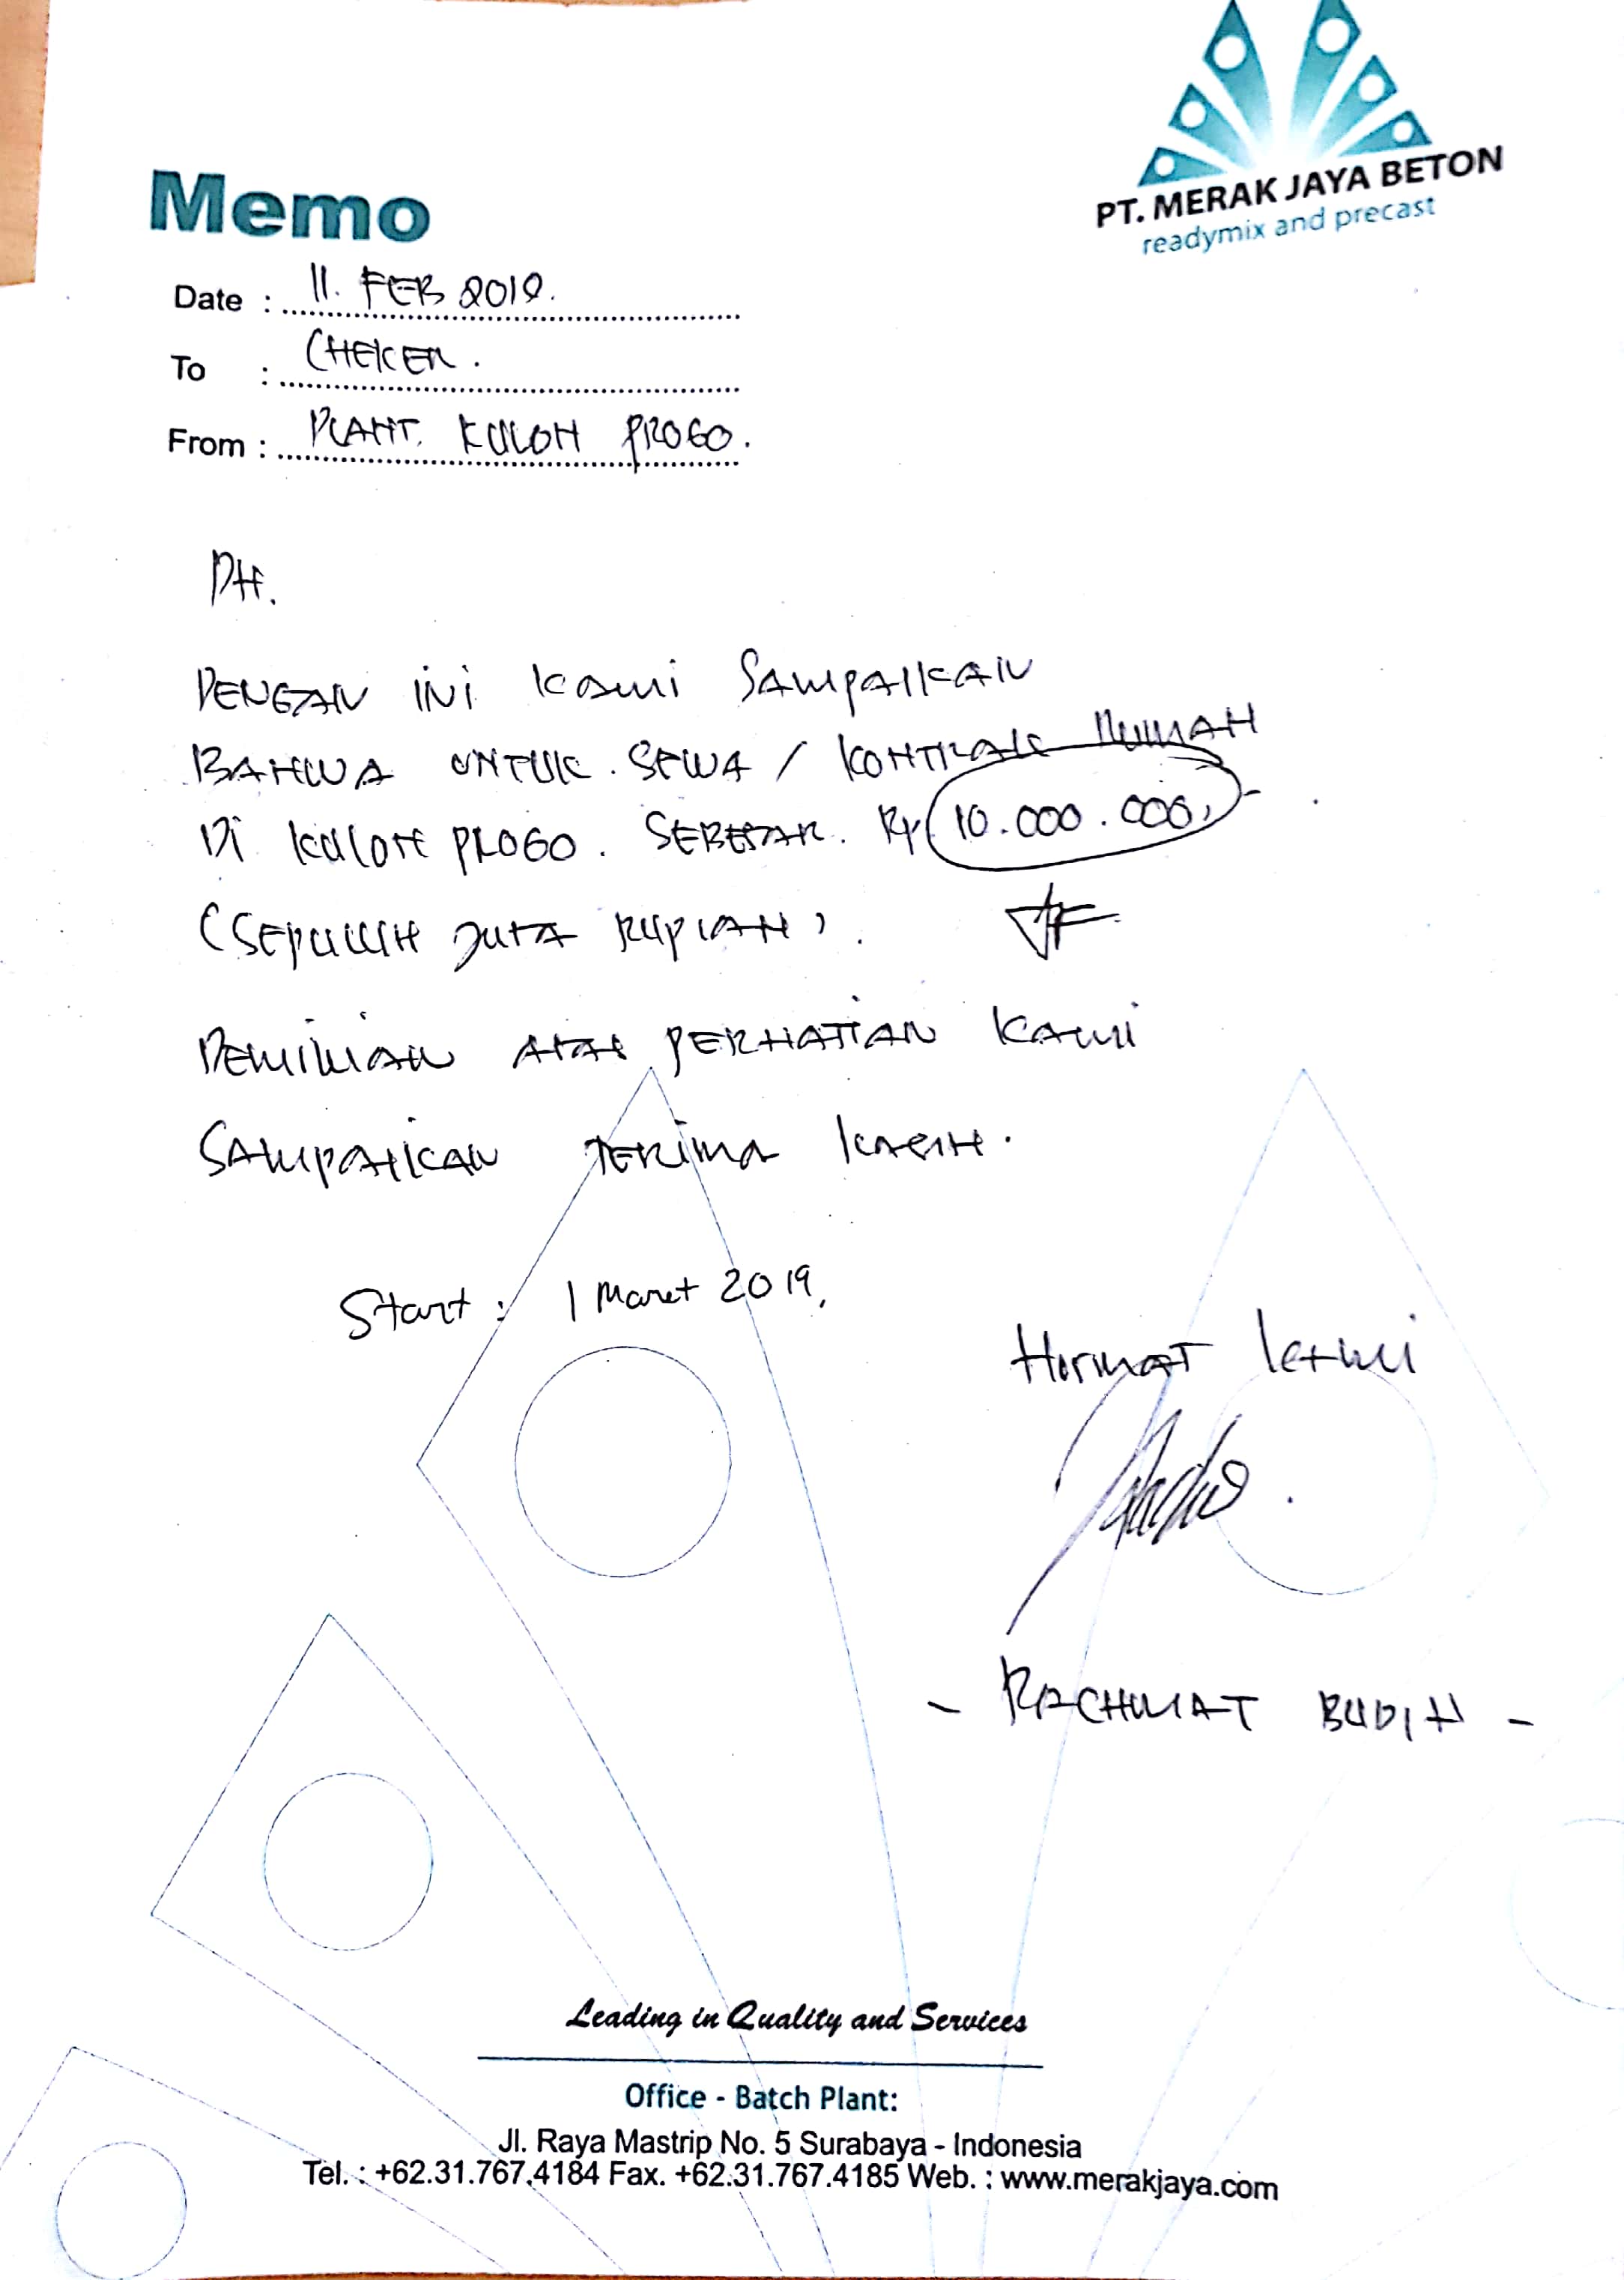 PT. MERAK JAYA BETON
readymix and precast
Memo
Date : 11. FEB 2019.
To : CHEKER.
From : PLANT. KULON PROGO.
DH.
DENGAN INI KAMI SAMPAIKAN
BAHWA UNTUK. SEWA / KONTRAK RUMAH
DI KULON PROGO. SEBESAR. Rp 10.000.000,-
(SEPULUH JUTA RUPIAH).
DEMIKIAN ATAS PERHATIAN KAMI
SAMPAIKAN TERIMA KASIH.
Start : 1 Maret 2019,
HORMAT KAMI
- RACHMAT BUDI -
Leading in Quality and Services
Office - Batch Plant:
Jl. Raya Mastrip No. 5 Surabaya - Indonesia
Tel. : +62.31.767.4184 Fax. +62.31.767.4185 Web. : www.merakjaya.com